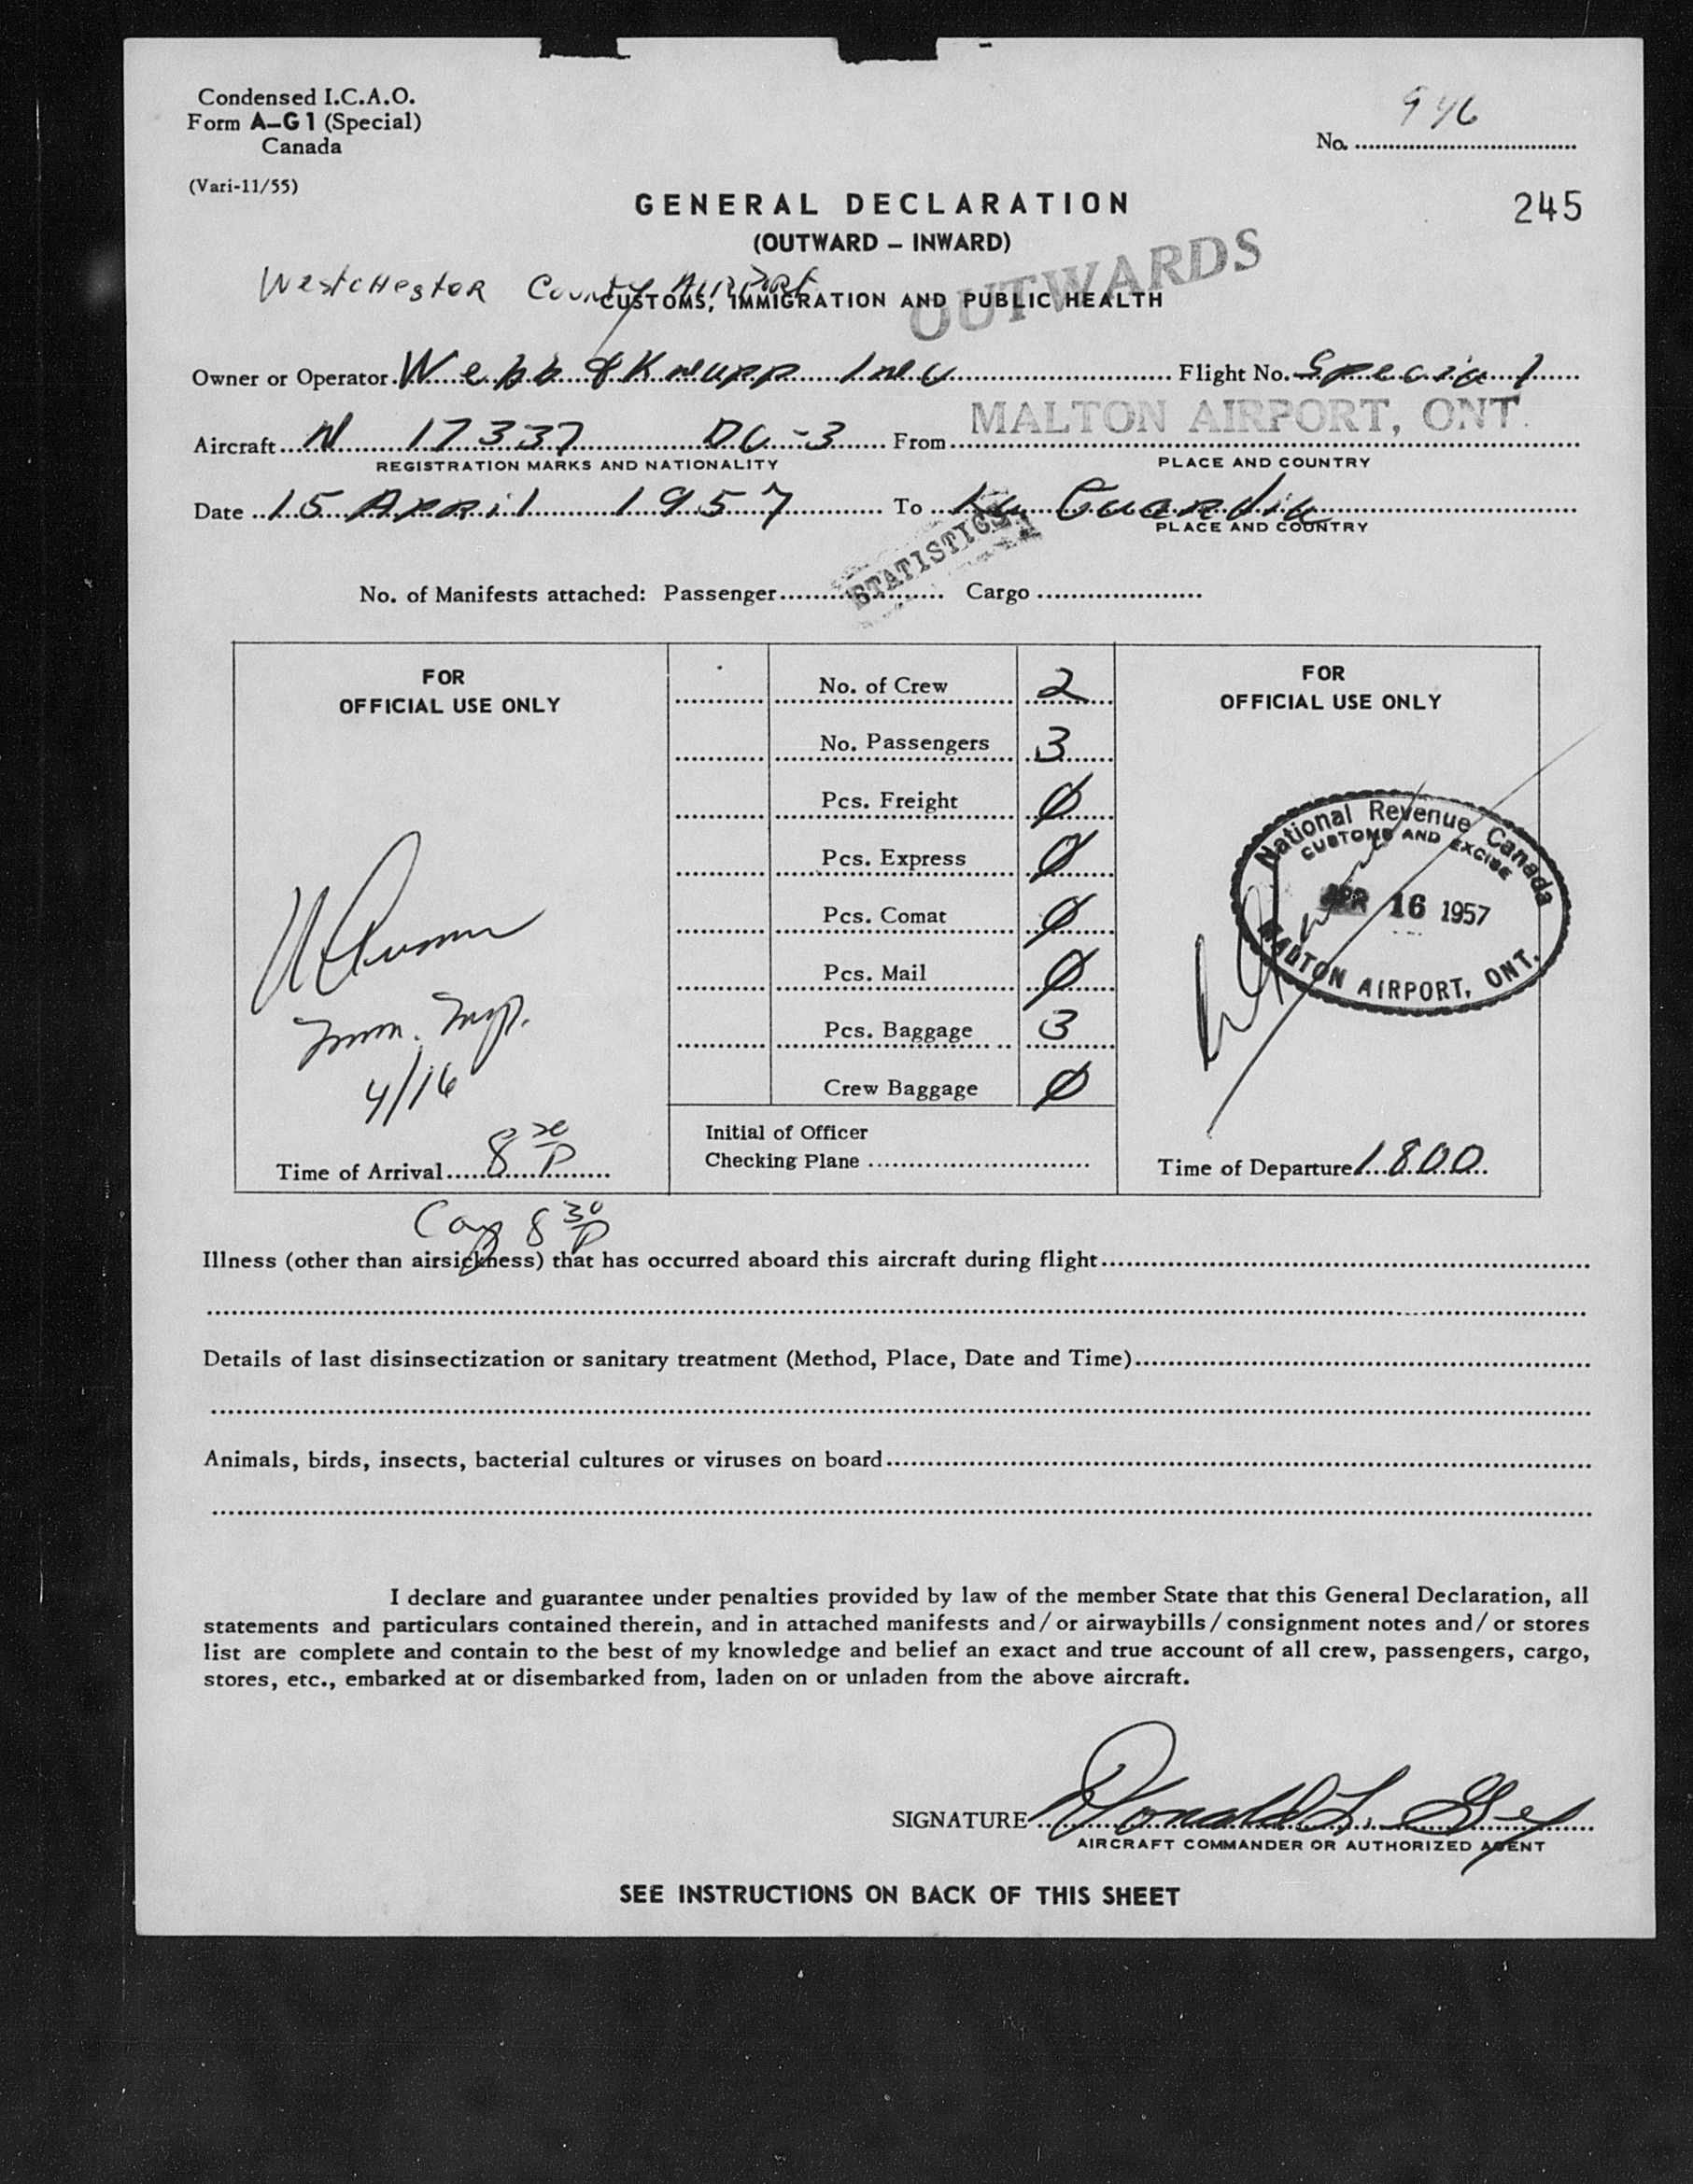 Condensed I.C.A.O.
Form A-G1 (Special)
Canada
(Vari-11/55)
No. 946
245
GENERAL DECLARATION
(OUTWARD - INWARD)
OUTWARDS
Westchester County Airport
CUSTOMS, IMMIGRATION AND PUBLIC HEALTH
Owner or Operator Webb & Knapp Inc Flight No. Special
Aircraft N 17337 DC-3 From MALTON AIRPORT, ONT.
REGISTRATION MARKS AND NATIONALITY PLACE AND COUNTRY
Date 15 April 1957 To La Guardia
PLACE AND COUNTRY
STATISTICS
No. of Manifests attached: Passenger Cargo
FOR
OFFICIAL USE ONLY
Imm. Insp.
4/16
Time of Arrival 8 P
No. of Crew 2
No. Passengers 3
Pcs. Freight Ø
Pcs. Express Ø
Pcs. Comat Ø
Pcs. Mail Ø
Pcs. Baggage 3
Crew Baggage Ø
Initial of Officer
Checking Plane
FOR
OFFICIAL USE ONLY
National Revenue Canada
CUSTOMS AND EXCISE
APR 16 1957
MALTON AIRPORT, ONT.
Time of Departure 1800
8 30 P
Illness (other than airsickness) that has occurred aboard this aircraft during flight
Details of last disinsectization or sanitary treatment (Method, Place, Date and Time)
Animals, birds, insects, bacterial cultures or viruses on board
I declare and guarantee under penalties provided by law of the member State that this General Declaration, all
statements and particulars contained therein, and in attached manifests and/or airwaybills/consignment notes and/or stores
list are complete and contain to the best of my knowledge and belief an exact and true account of all crew, passengers, cargo,
stores, etc., embarked at or disembarked from, laden on or unladen from the above aircraft.
SIGNATURE Donald L.
AIRCRAFT COMMANDER OR AUTHORIZED AGENT
SEE INSTRUCTIONS ON BACK OF THIS SHEET